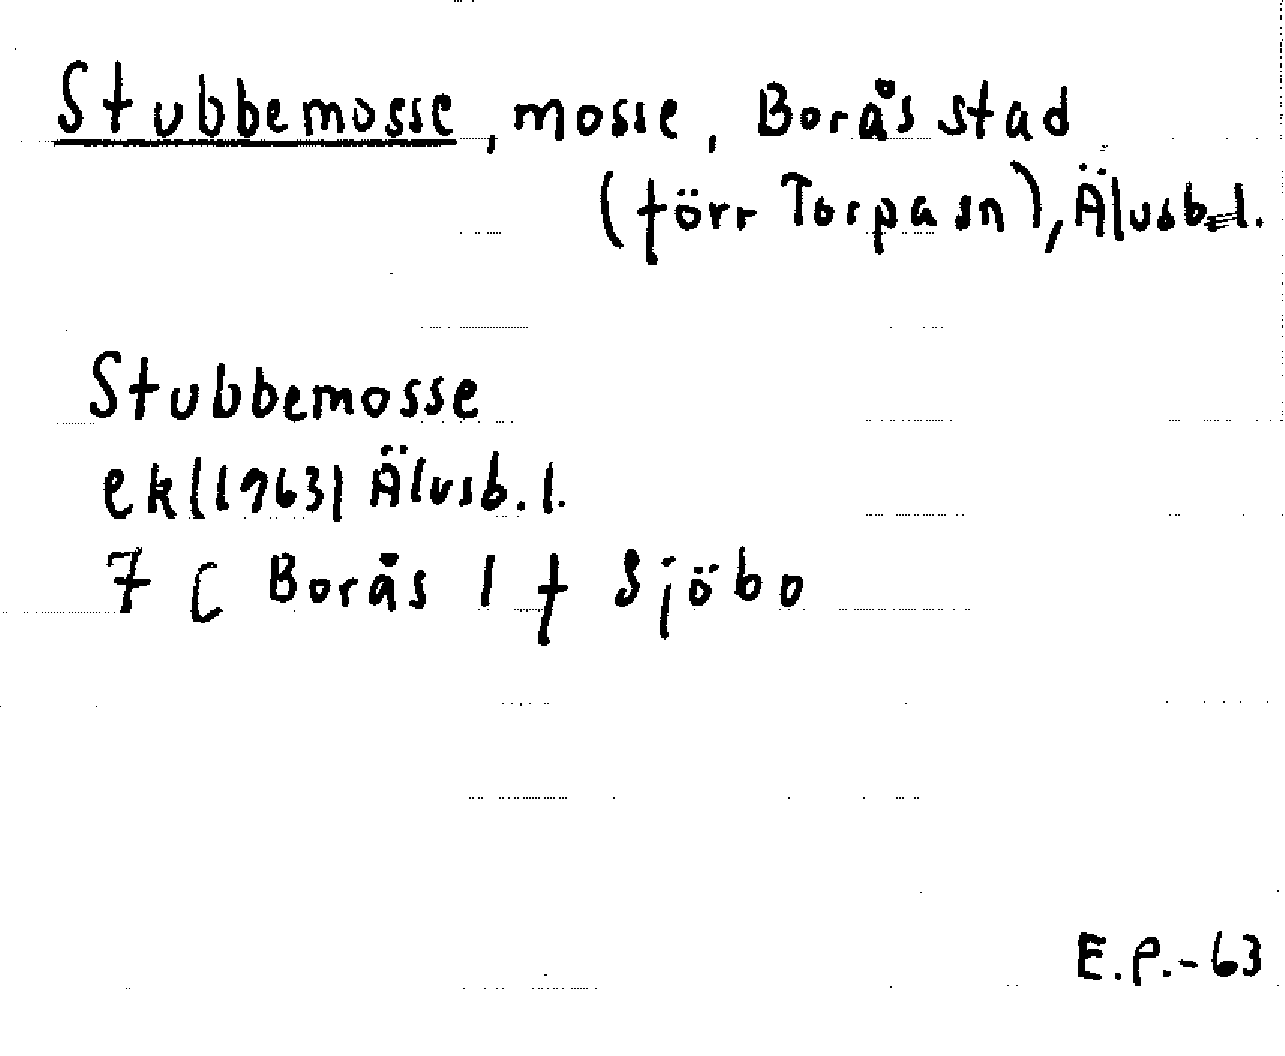 Stubbemosse, mosse, Borås stad
(förr Torpa sn), Älvsb. l.
Stubbemosse
ek (1963) Älvsb. l.
7 C Borås 1 f Sjöbo
E.P.-63